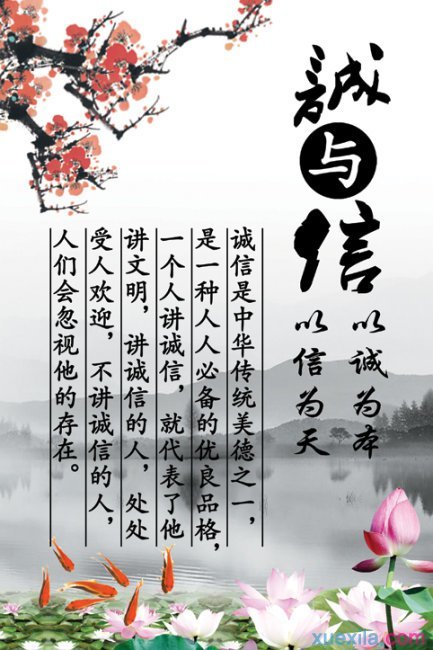 誠与信
以诚为本
以信为天
诚信是中华传统美德之一，
是一种人人必备的优良品格，
一个人讲诚信，就代表了他
讲文明，讲诚信的人，处处
受人欢迎，不讲诚信的人，
人们会忽视他的存在。
xuexila.com